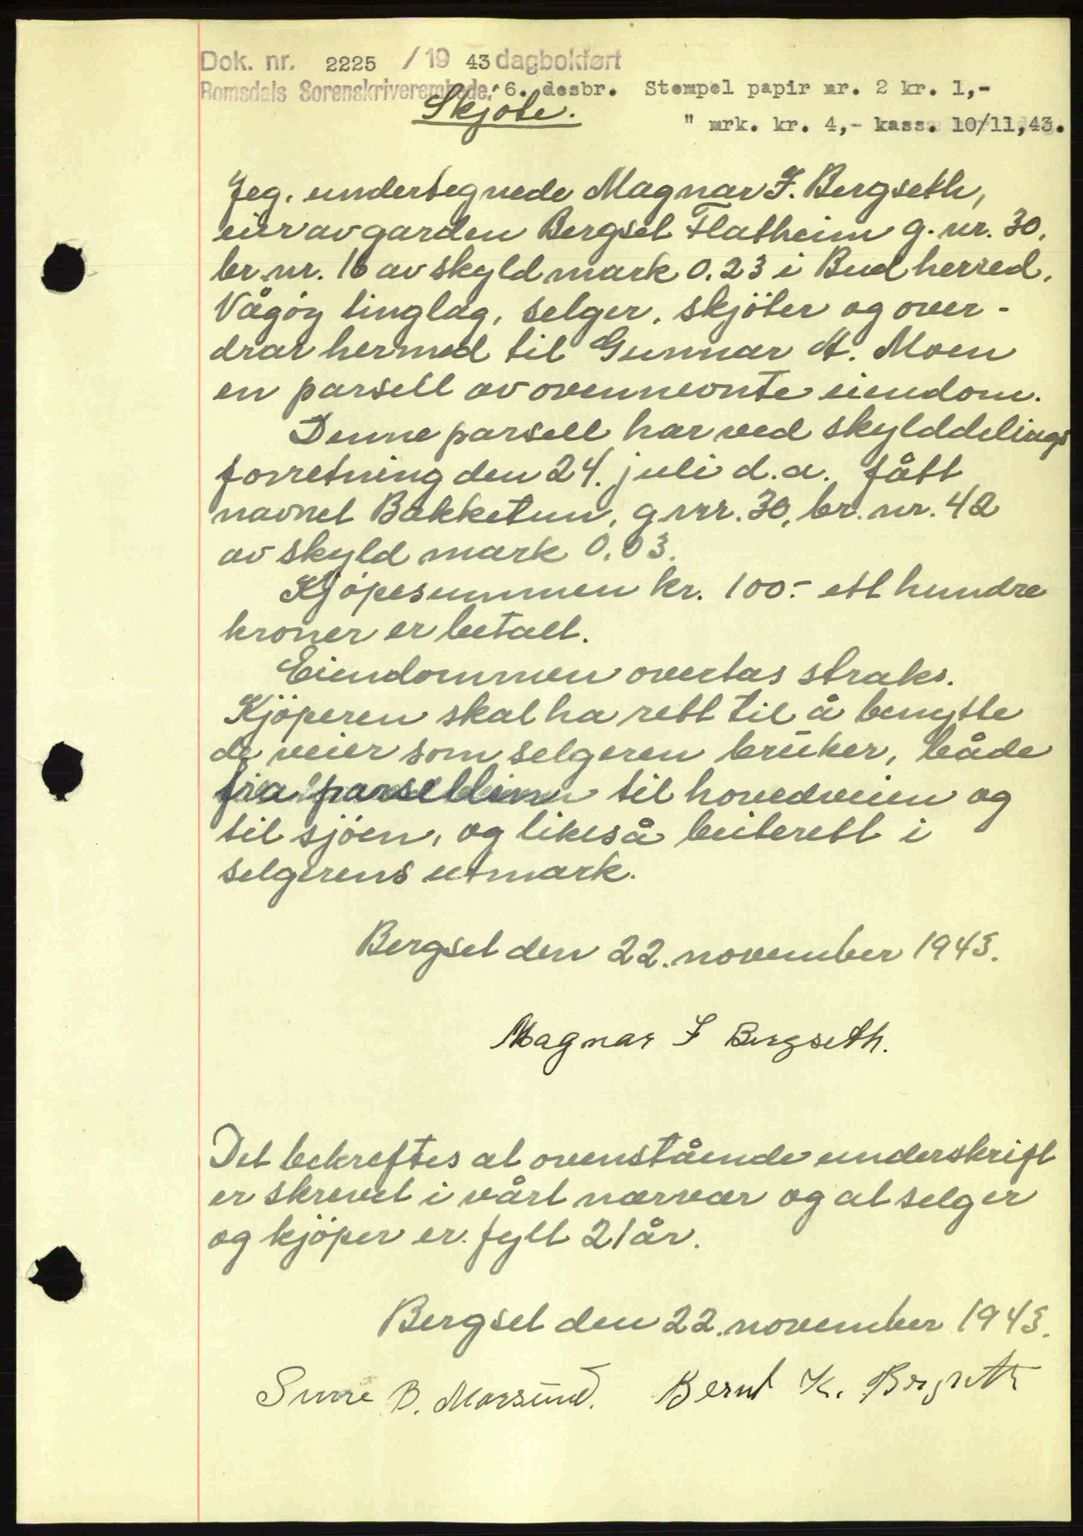 Dok. nr. 2225 / 19 43 dagbokført
Romsdals Sorenskriverembede. 6. desbr. Stempel papir nr. 2 kr. 1,-
" mrk. kr. 4,- kass. 10/11,43.
Skjöte.
Jeg, undertegnede Magnar F. Bergseth,
eier av garden Bergset Flatheim g. nr. 30,
br. nr. 16 av skyld mark 0.23 i Bud herred,
Vågöy tinglag, selger, skjöter og over-
drar hermed til Gunnar A. Moen
en parsell av ovennevnte eiendom.
Denne parsell har ved skylddelings
forretning den 24. juli d.a. fått
navnet Bakketun, g.nr. 30, br. nr. 42
av skyld mark 0.03.
Kjöpesummen kr. 100.- ett hundre
kroner er betalt.
Eiendommen overtas straks.
Kjöperen skal ha rett til å benytte
de veier som selgeren bruker, både
fra parsellen til hovedveien og
til sjöen, og likeså beiterett i
selgerens utmark.
Bergset den 22. november 1943.
Magnar F Bergseth.
Det bekreftes at ovenstående underskrift
er skrevet i vårt nærvær og at selger
og kjöper er fylt 21 år.
Bergset den 22. november 1943.
B. Morsund. Bernt K. Bergseth